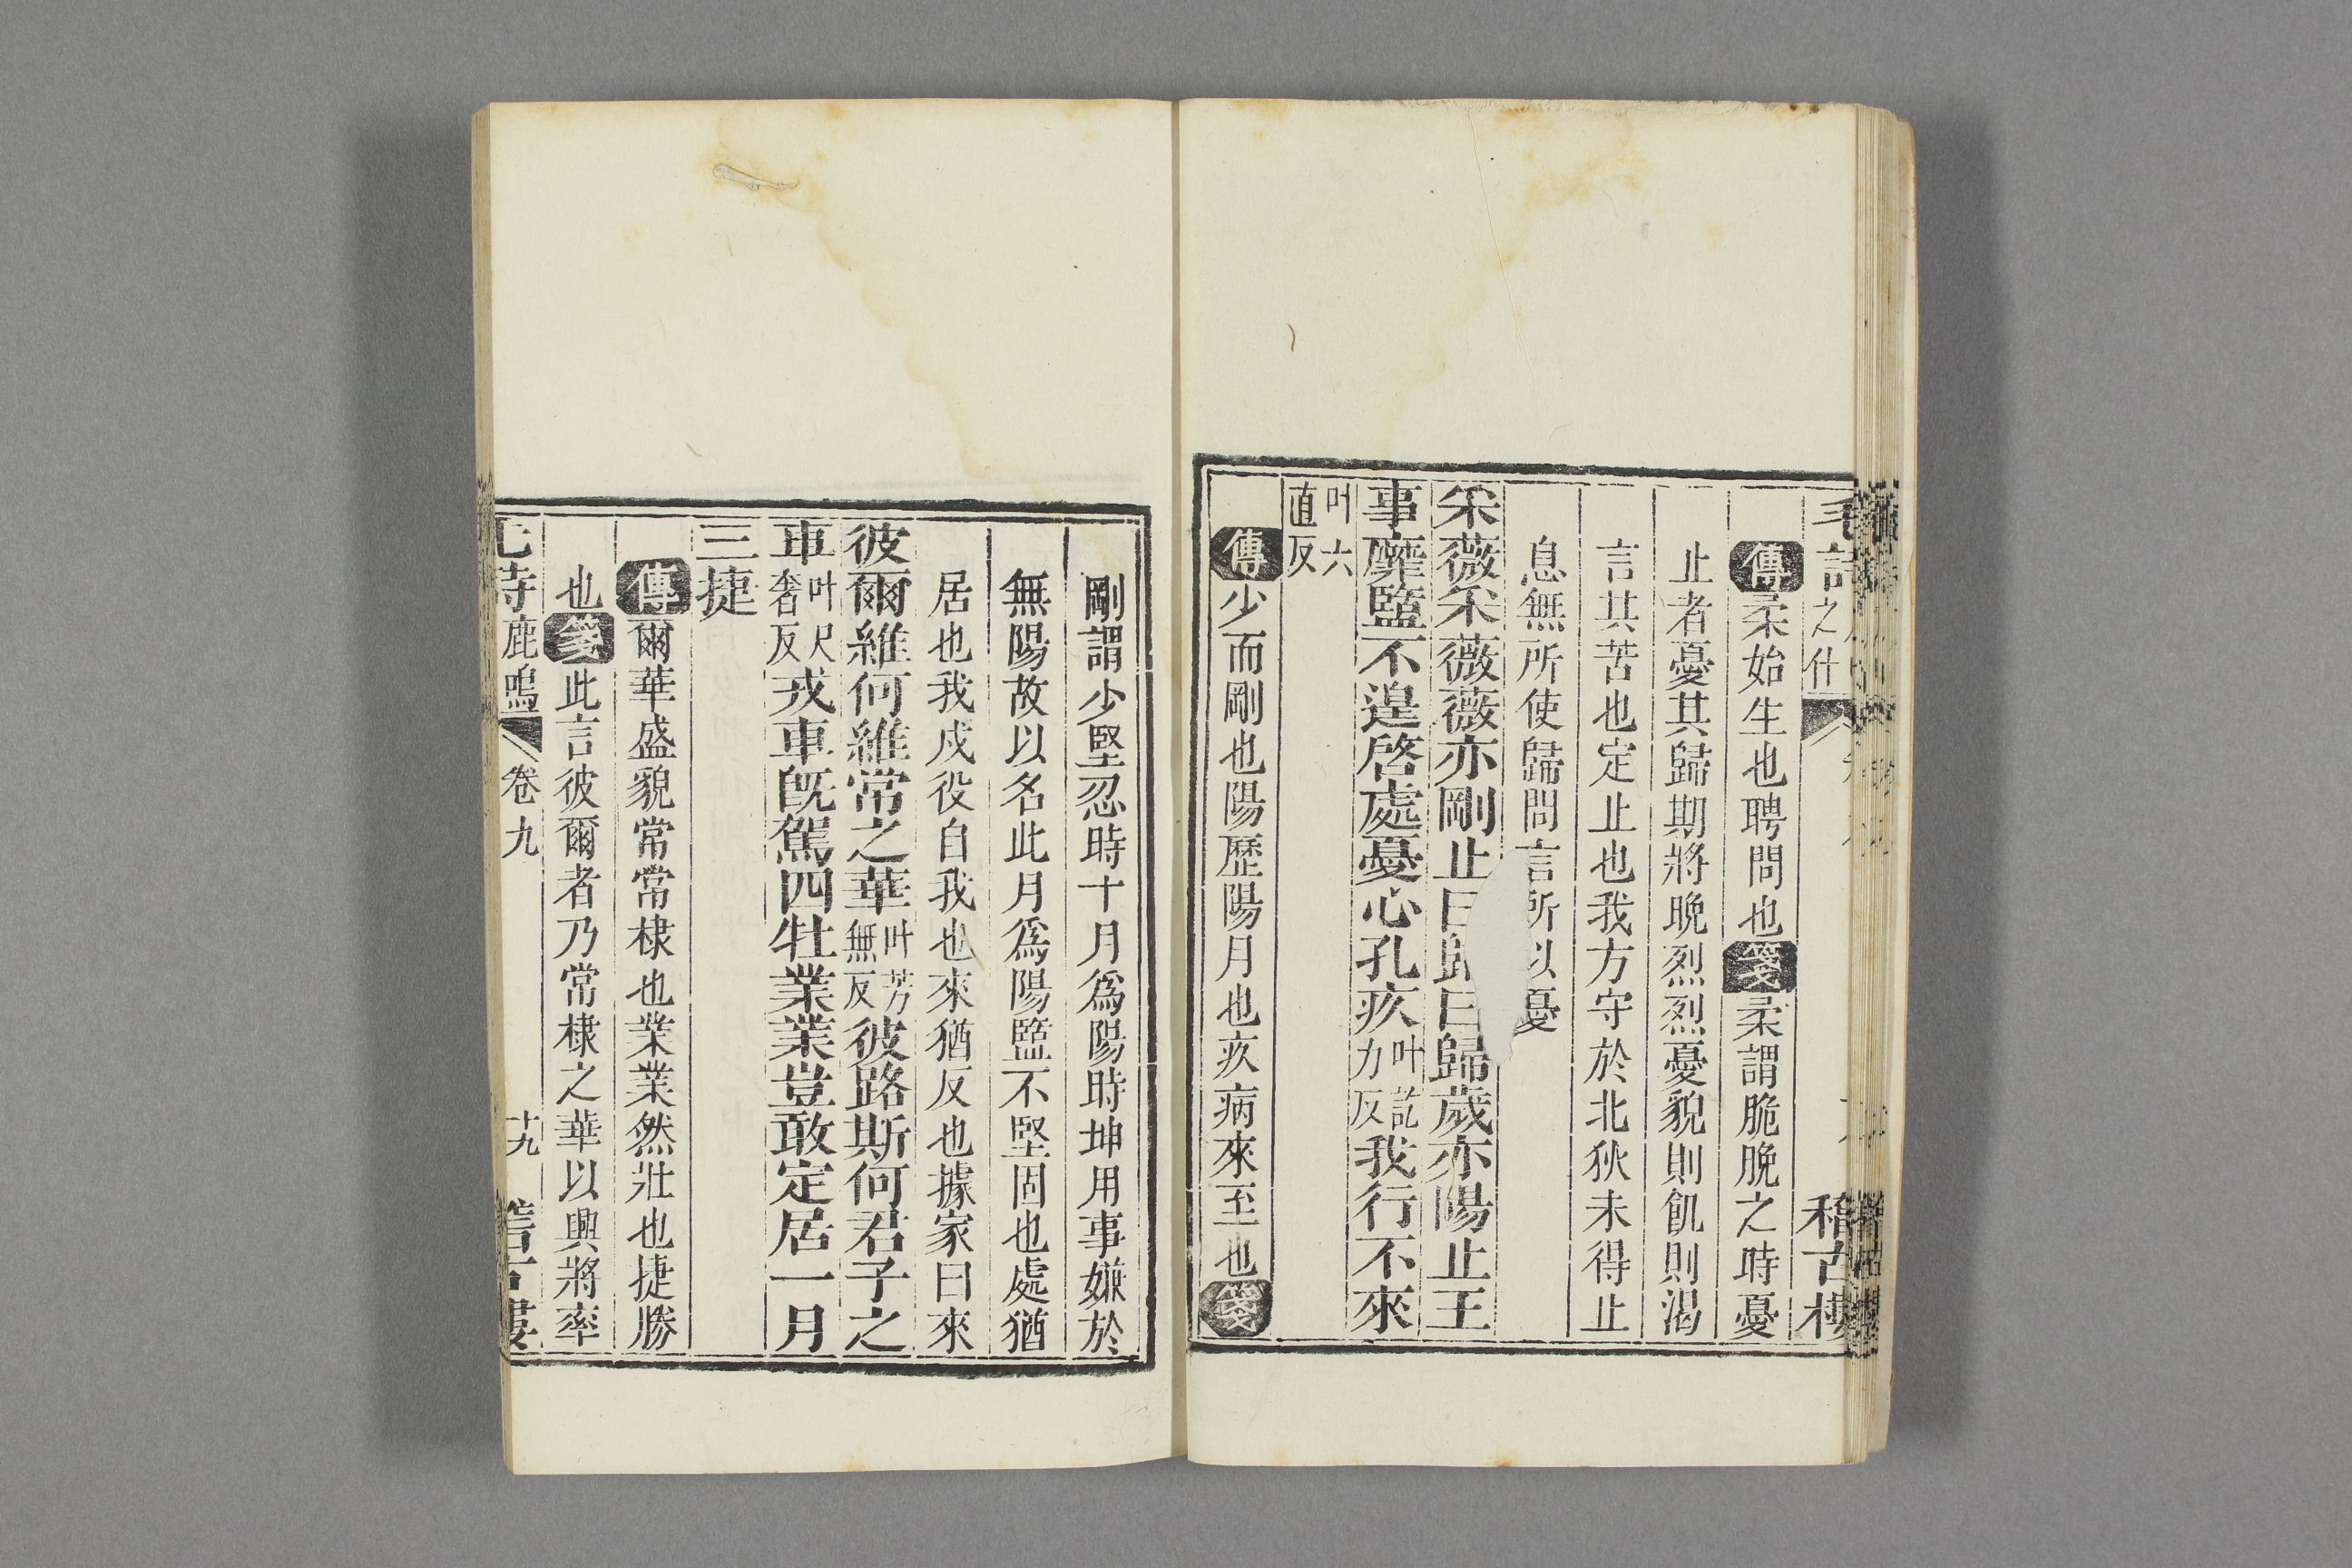 之什
稽古樓
傳柔始生也聘問也箋柔謂脆脕之時憂
止者憂其歸期將晚烈烈憂貌則飢則渴
言其苦也定止也我方守於北狄未得止
息無所使歸問言所以憂
采薇采薇薇亦剛止曰歸曰歸歲亦陽止王
事靡盬不遑啓處憂心孔疚叶訖力反我行不來
叶六直反
傳少而剛也陽歷陽月也疚病來至也箋
剛謂少堅忍時十月爲陽時坤用事嫌於
無陽故以名此月爲陽盬不堅固也處猶
居也我戍役自我也來猶反也據家曰來
彼爾維何維常之華叶芳無反彼路斯何君子之
車叶尺奢反戎車旣駕四牡業業豈敢定居一月
三捷
傳爾華盛貌常常棣也業業然壯也捷勝
也箋此言彼爾者乃常棣之華以興將率
鹿鳴 卷九 十九